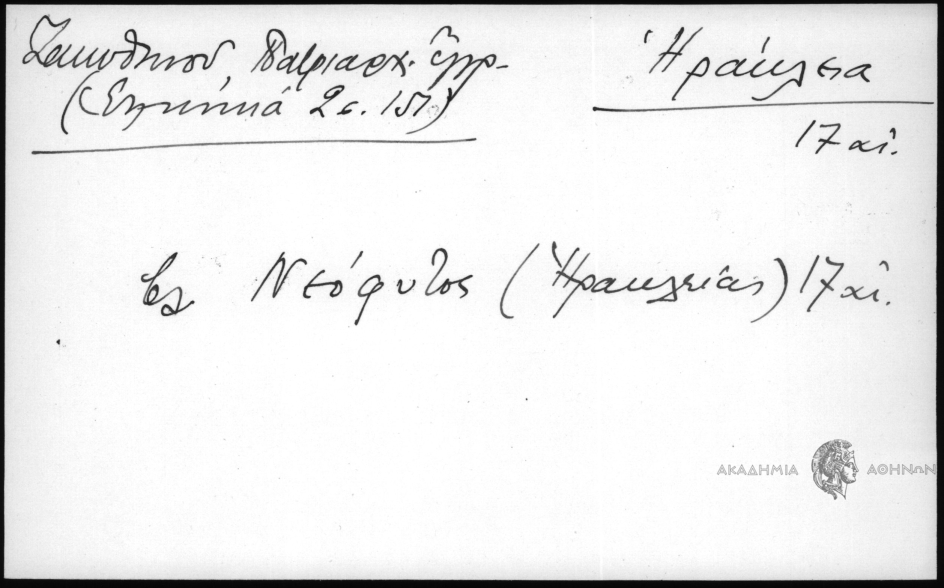 Ζακυθηνοῦ Πατριαρχ. ἔγγρ-
(Ἑλληνικά 2 σ. 151)
Ἡράκλεια
17 αἰ.
βλ Νεόφυτος (Ἡρακλείας) 17 αἰ.
ΑΚΑΔΗΜΙΑ ΑΘΗΝΩΝ